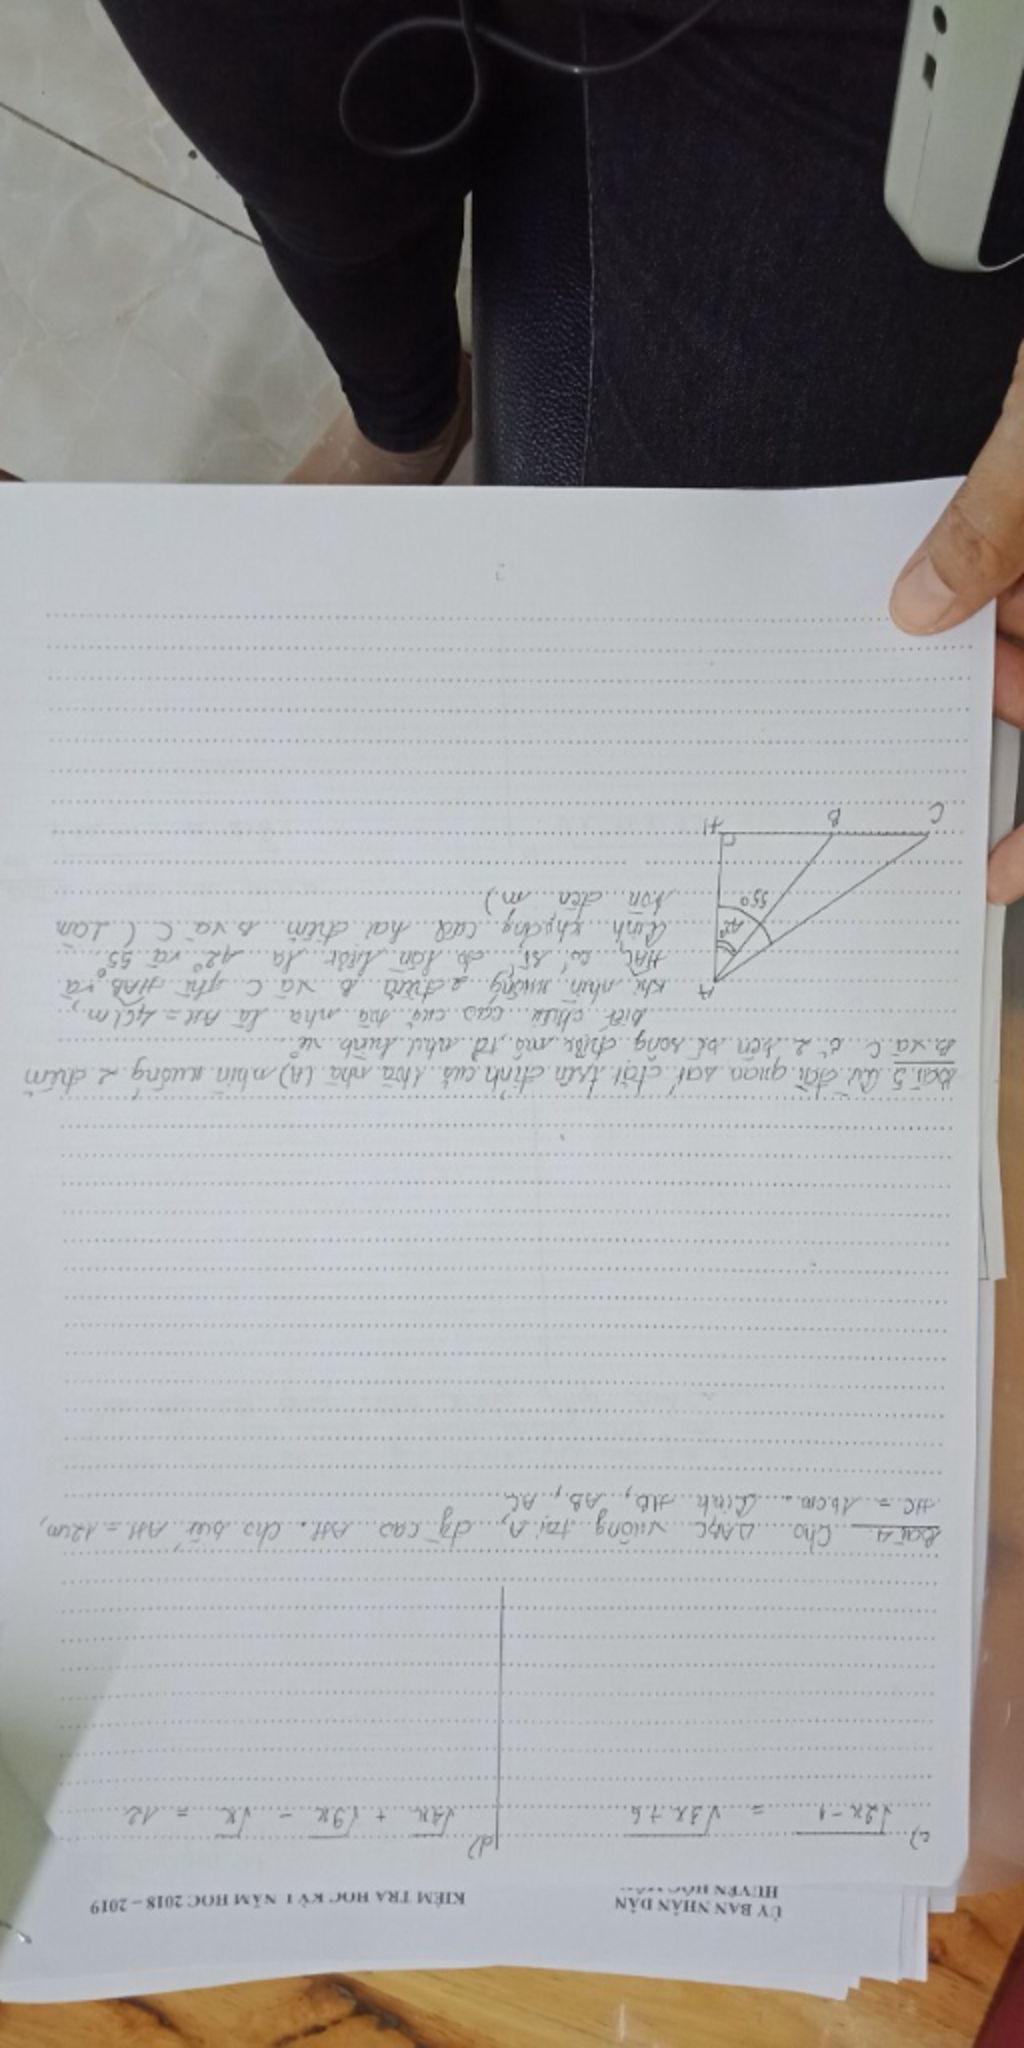 ỦY BAN NHÂN DÂN
HUYỆN HÓC
KIỂM TRA HỌC KỲ I NĂM HỌC 2018 – 2019
c) √2x-1 = √3x+6
d) √4x + √9x - √x = 12
Bài 4 Cho ΔABC vuông tại A, đg cao AH. Cho biết AH = 12cm,
HC = 16cm. Tính HB, AB, AC.
Bài 5 đài quan sát đặt trên đỉnh của tòa nhà (A) nhìn xuống 2 điểm
B và C ở 2 bên bờ sông được mô tả như hình vẽ.
Biết chiều cao của tòa nhà là AH = m,
khi nhìn xuống 2 điểm B và C thì HAB và
HAC có số đo lần lượt là 42° và 55°.
Tính khoảng cách hai điểm B và C (Làm
tròn đến m)
A
42°
55°
H
B
C